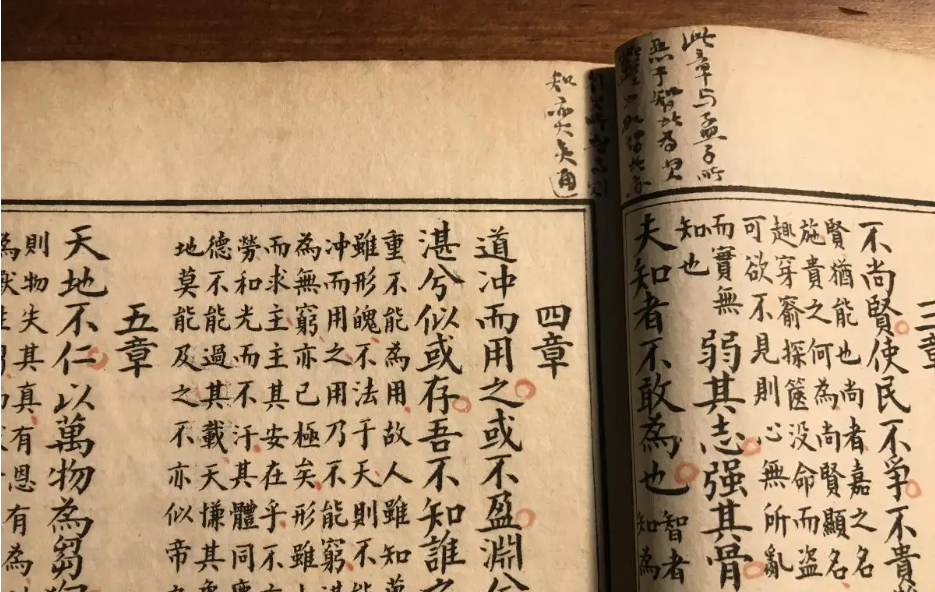 此章与孟子所
三章
不尚賢使民不爭不貴
賢猶能也尚者嘉之名
施貴之何為尚賢顯名
趣穿窬探篋沒命而盜
可欲不見則心無所亂
而實無
知也
弱其志强其骨
夫知者不敢為也
智者
知為
四章
道冲而用之或不盈淵兮
湛兮似或存吾不知誰之
重不能為用故人雖知萬
雖形魄不法于天則不能
冲而用之用乃不能窮
為無窮亦已極矣形雖
而求主主其安在乎不亦
勞和光而不汙其體同塵
德不能過其載天慊其
地莫能及之不亦似帝
五章
天地不仁以萬物為芻狗
則物失其真有恩有為